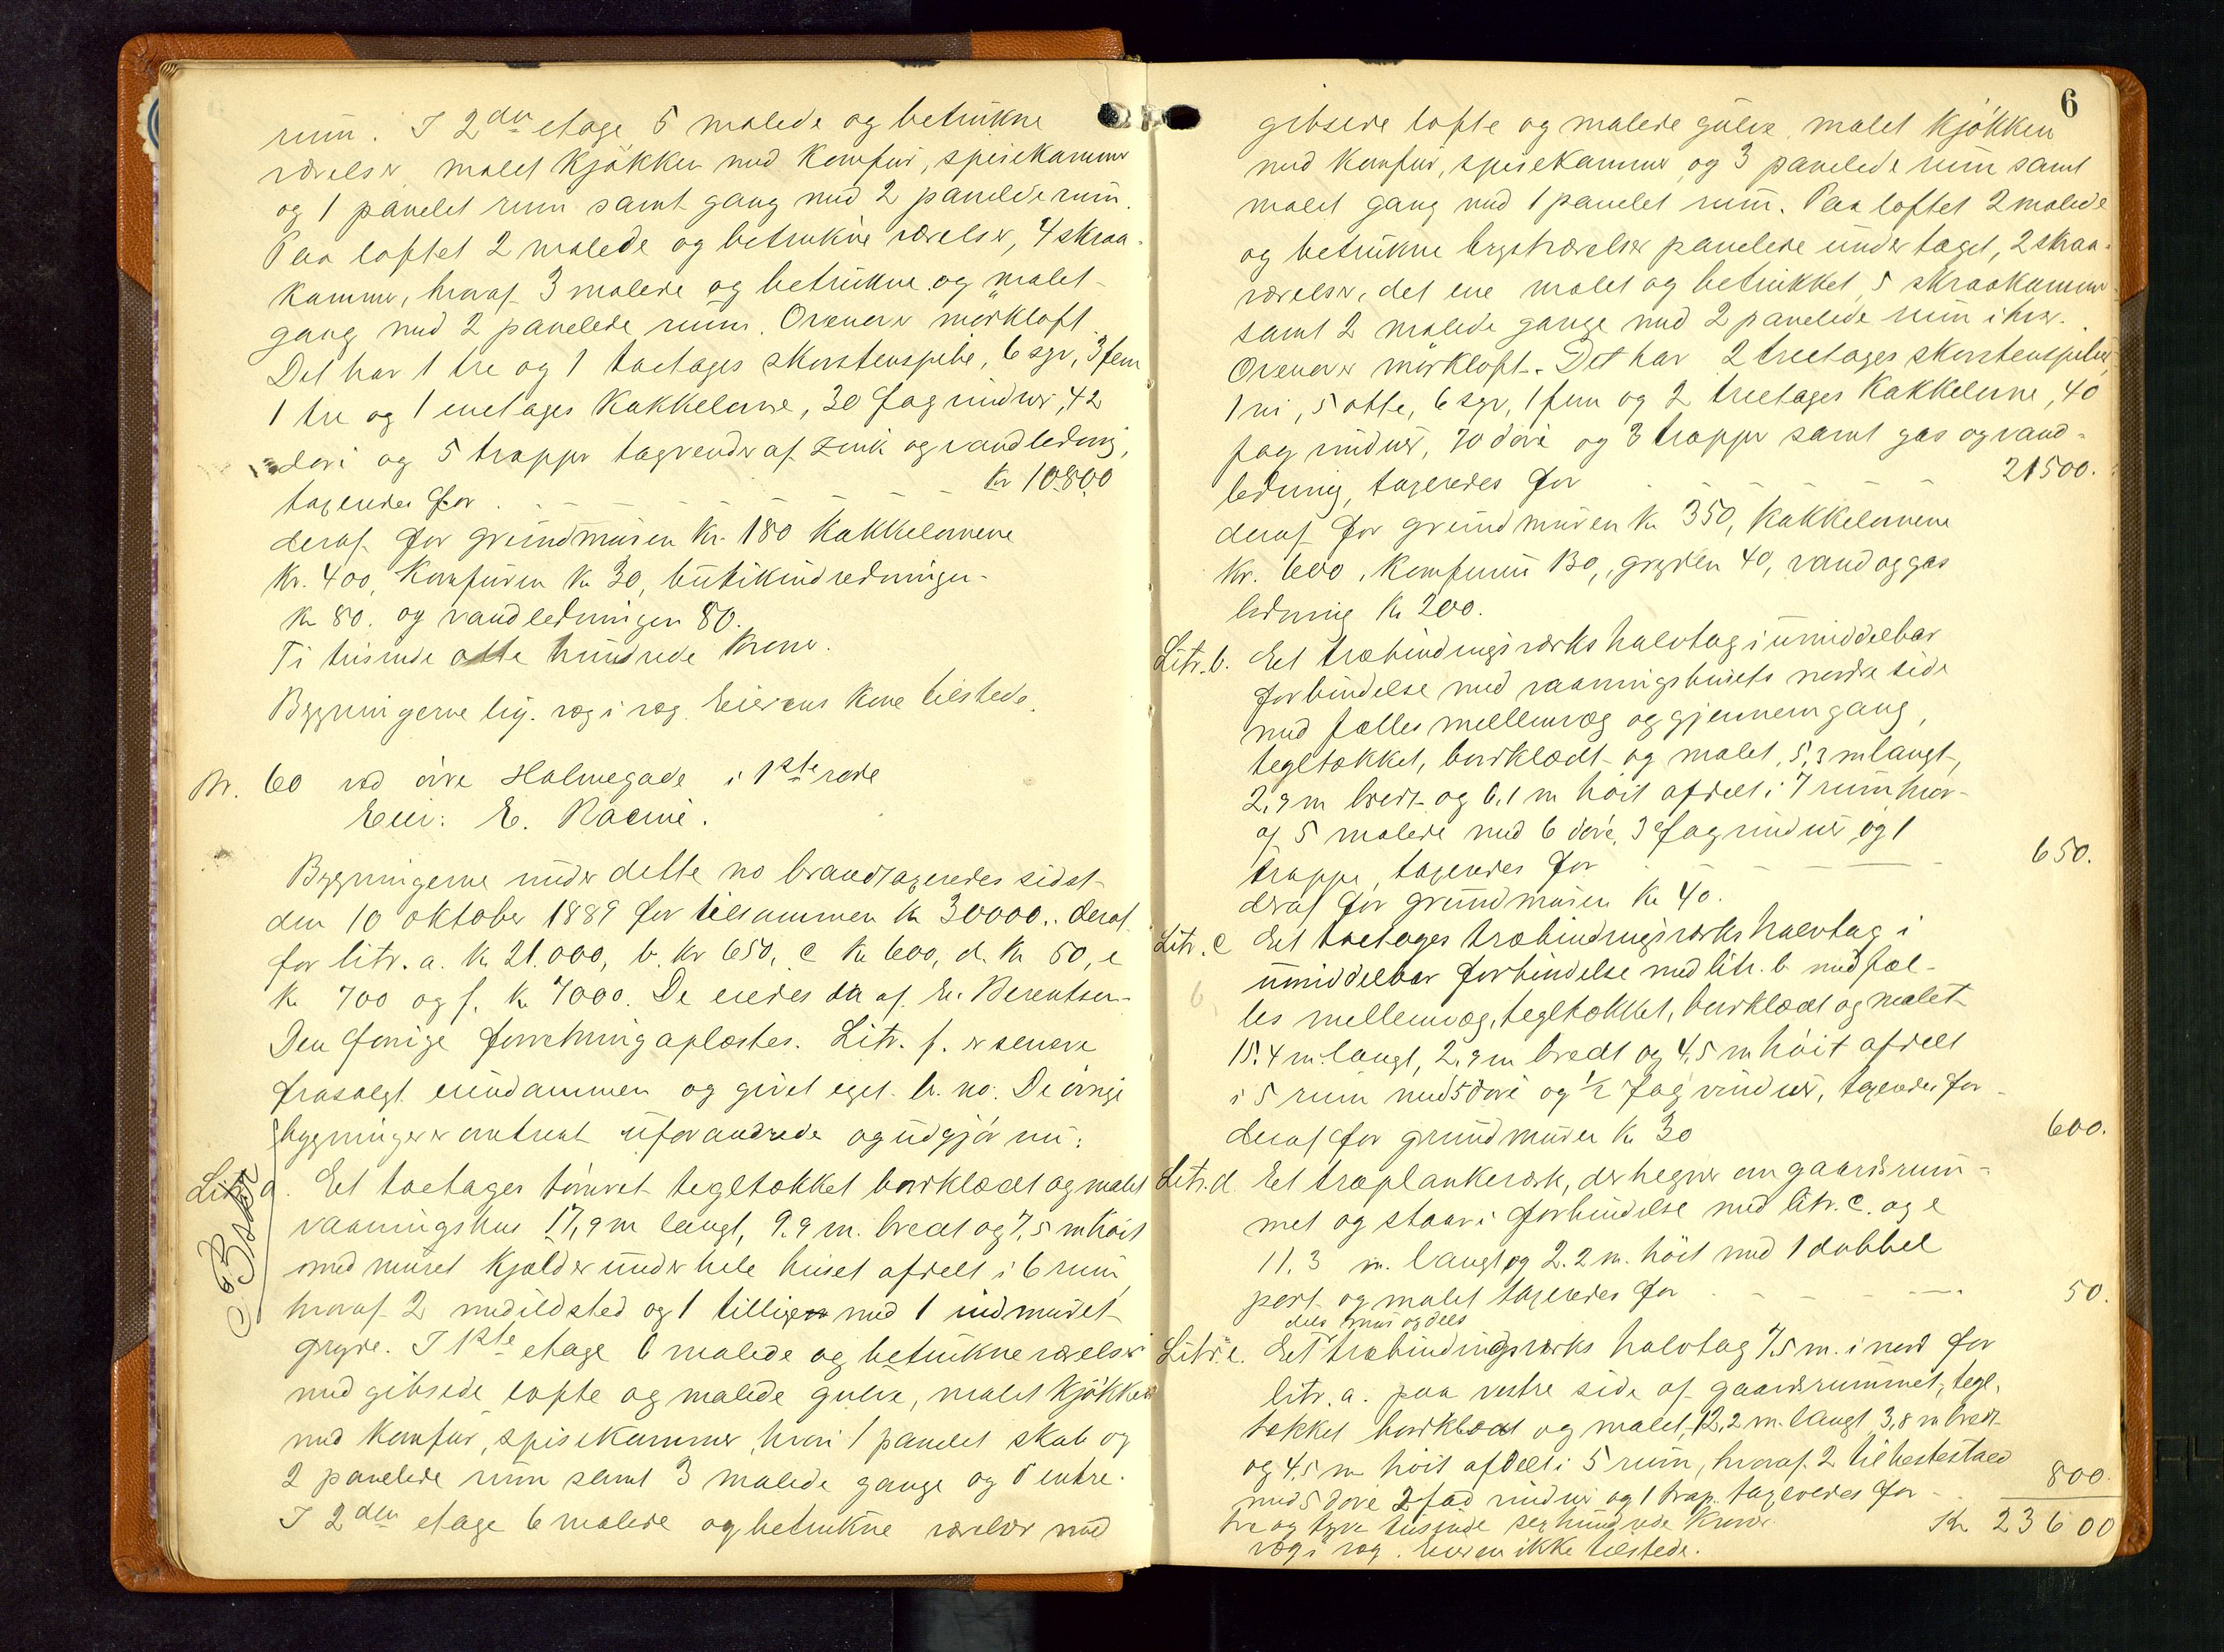 rum. I 2den etage 5 malede og betrukne
værelser malet kjøkken med komfur, spisekammer
og 1 panelet rum samt gang med 2 panelede rum.
Paa loftet 2 malede og betrukne værelser, 4 skraa-
kammer, hvoraf 3 malede og betrukne og malet
gang med 2 panelede rum. Ovenover mørkloft.
Det har 1 tre og 1 toetages skorstenspibe, 6 sex, 3 fem
1 tre og 1 enetages kakkelovne, 30 fag vinduer, 42
døri og 5 trapper tagrender af zink og vandledning,
taxeredes for - - - - - Kr 10800
deraf for grundmuren Kr. 180 kakkelovnene
Kr. 400, komfuren Kr 30, butikindredningen
Kr 80. og vandledningen 80.
Ti tusinde otte hundrede kroner.
Bygningerne lig. væg i væg. Eierens kone tilstede.
Nr. 60 ved øvre Holmegade i 1ste rode
Eier: E. Racine.
Bygningerne under dette no brandtaxeredes sidst
den 10 oktober 1889 for tilsammen Kr 30000.. deraf
for litr. a. Kr 21.000, b. Kr 650, c Kr 600, d. Kr 50, e
Kr 700 og f. Kr 7000. De eiedes da af E. Berentsen.
Den forrige forretning aplæstes. Litr. f. er senere
frasolgt eiendommen og givet eget br. no. De øvrige
bygninger er omtrent uforandrede og udgjør nu:
Litr. a. Et toetages tømret tegltækket bordklædt og malet
vaaningshus 17,9 m langt, 9.9 m. bredt og 7,5 m høit
med muret kjælder under hele huset afdelt i 6 rum
hvoraf 2 med ildsted og 1 tillige med 1 indmuret
gryde. I 1ste etage 6 malede og betrukne værelser
med gibsede lofte og malede gulve, malet kjøkken
med komfur, spisekammer, hvori 1 panelet skab og
2 panelede rum samt 3 malede gange og 1 entre.
I 2den etage 6 malede og betrukne værelser med
6
gibsede lofte og malede gulve, malet kjøkken
med komfur, spisekammer og 3 panelede rum samt
malet gang med 1 panelet rum. Paa loftet 2 malede
og betrukne brystværelser panelede under taget, 2 skraa-
værelser, det ene malet og betrukket, 5 skraakammer
samt 2 malede gange med 2 panelede rum i hver.
Ovenover mørkloft. Det har 2 treetages skorstenspiber,
1 ni, 5 otte, 6 sex, 1 fem og 2 treetages kakkelovne, 40
fag vinduer, 70 døre og 3 trapper samt gas og vand-
ledning, taxeredes for - - - - - 21500.
deraf for grundmuren Kr 350, kakkelovnene
Kr. 600, komfuren 130,, gryden 40, vand og gas
ledning Kr 200.
Litr. b. Et træbindingsværks halvtag i umiddelbar
forbindelse med vaaningshusets nordre side
med fælles mellemvæg og gjennemgang,
tegltækket, bordklædt og malet, 5,3 m langt,
2,9 m bredt og 6,1 m høit afdelt i 7 rum hvor-
af 5 malede med 6 døre, 3 fag vinduer og 1
trappe, taxeredes for - - - - 650.
deraf for grundmuren Kr 40.
Litr. c Et toetages træbindingsværks halvtag i
umiddelbar forbindelse med litr. b med fæl-
les mellemvæg, tegltækket, bordklædt og malet
15.4 m. langt, 2,9 m bredt og 4,5 m høit afdelt
i 5 rum med 5 døre og ½ fag vinduer, taxeredes for -
deraf for grundmuren Kr 30 600.
Litr. d. Et træplankeværk, der hegner om gaardsrum-
met og staar i forbindelse med litr. c. og e
11.3 m. langt og 2.2 m. høit med 1 dobbel
port og malet taxeredes for - - - - 50.
dels mur og dels
Litr. e. Et træbindingsværks halvtag 7.5 m. i nord for
litr. a. paa vestre side af gaardsrummet, tegl,
tækket bordklædt og malet, 12,2 m. langt, 3,8 m bredt
og 4.5 m høit afdelt i 5 rum, hvoraf 2 til hestestald
med 5 døre 2 fag vinduer og 1 trap. taxeredes for - 800.
tre og tyve tusinde sex hundrede kroner. Kr 23600
væg i væg. Eieren ikke tilstede.